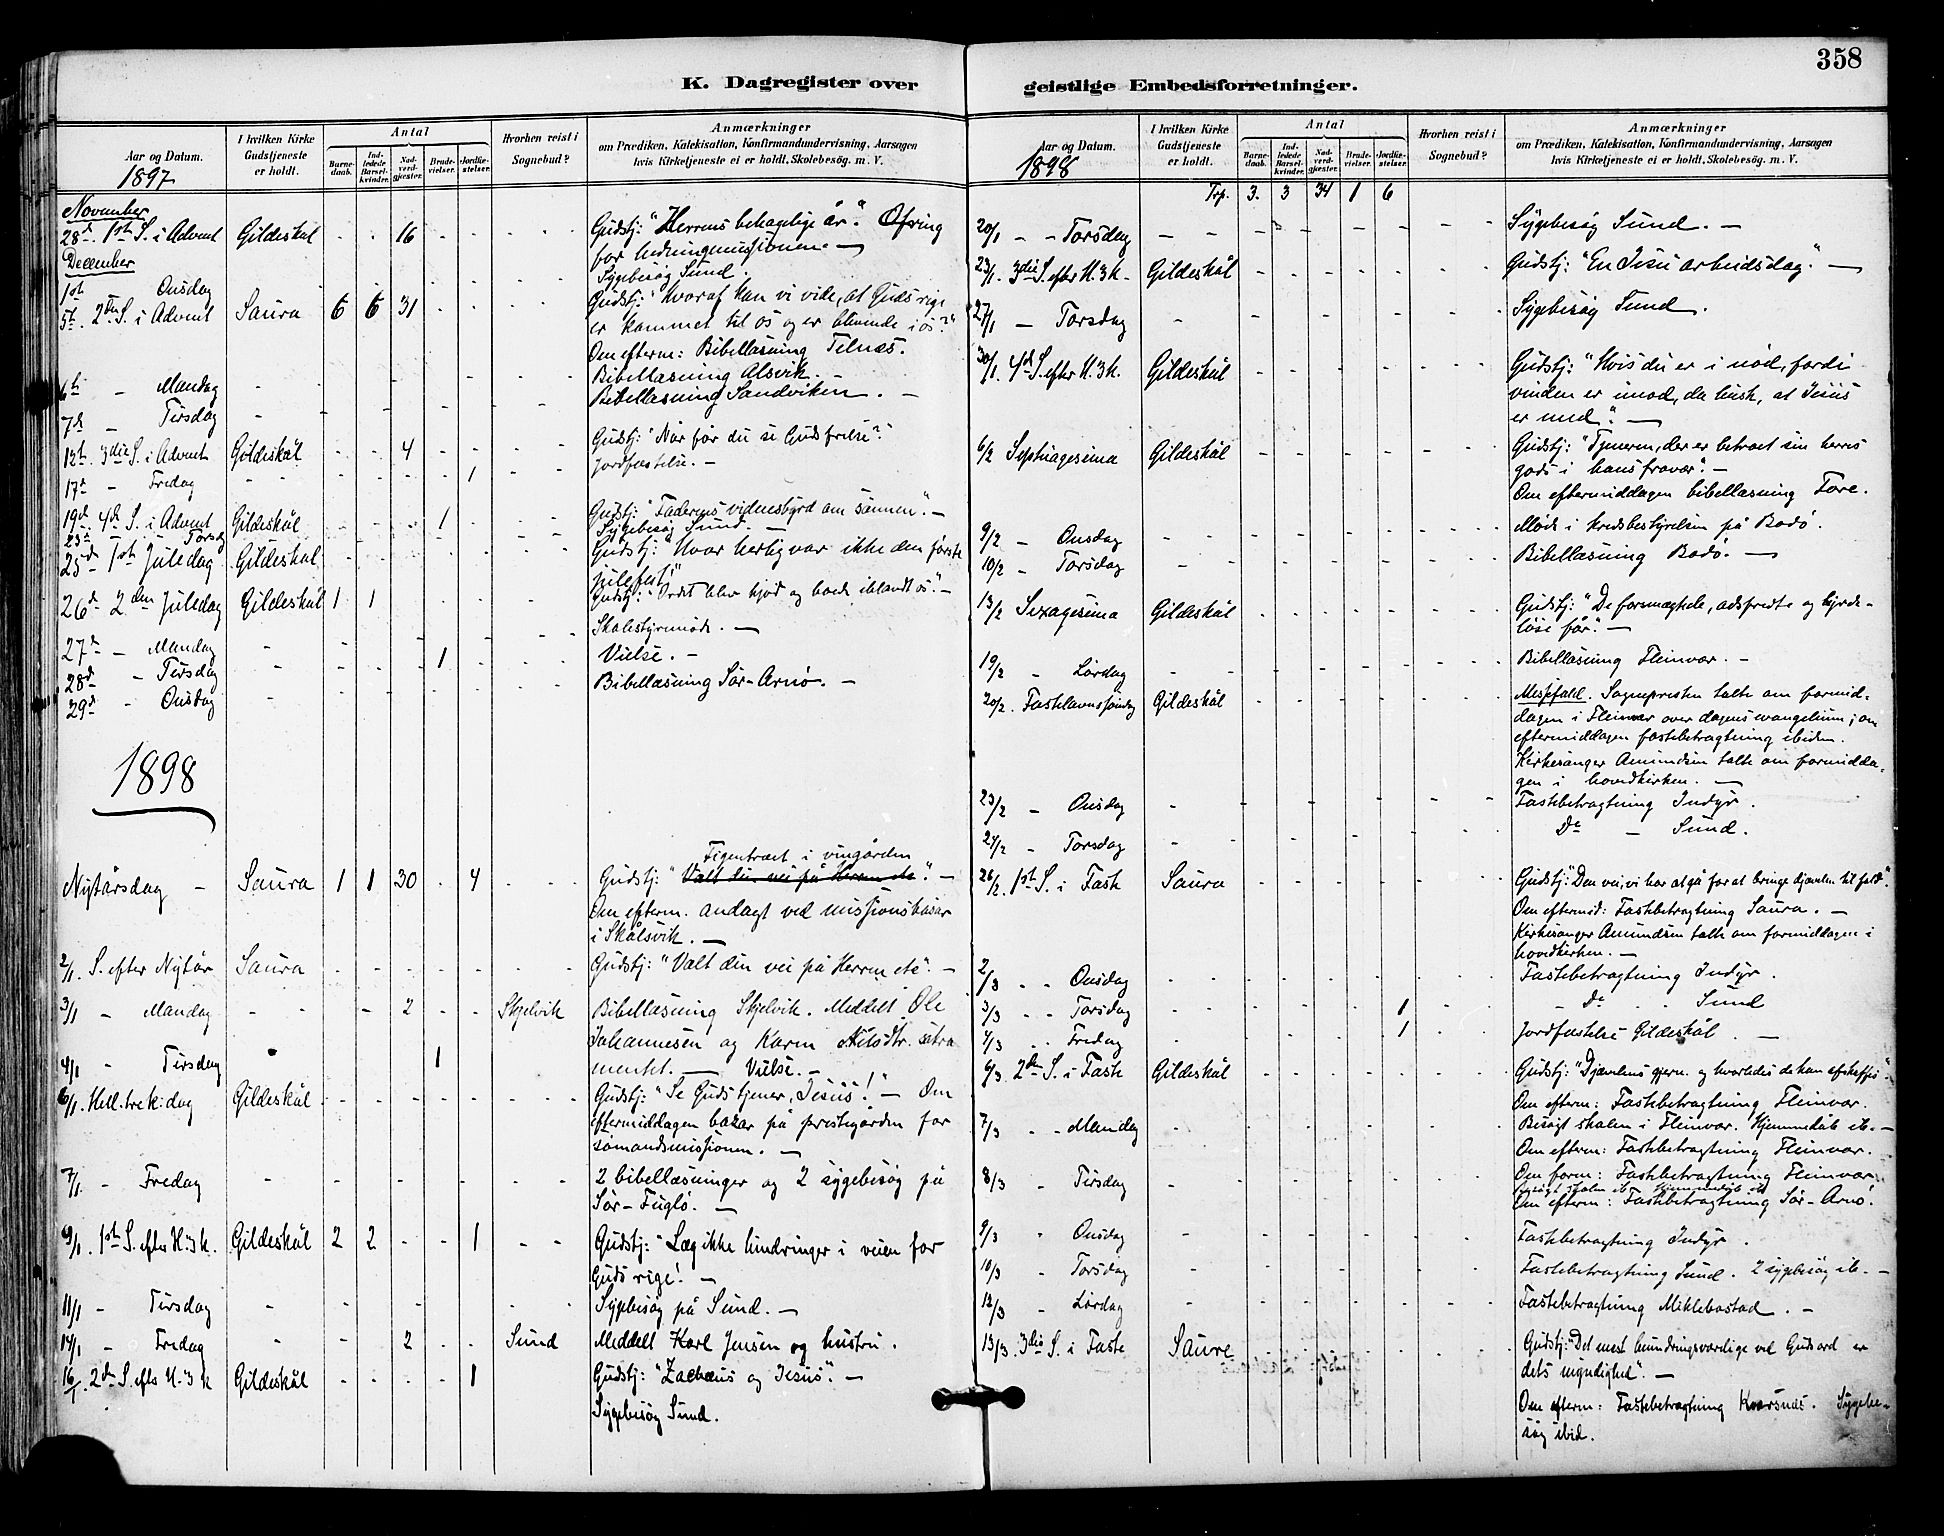 358
K. Dagregister over
Aar og Datum.
1897
I hvilken Kirke Gudstjeneste er holdt.
Antal
Barnedaab.
Indledede Barselkvinder.
Nadverdgjester.
Brudevielser.
Jordfæstelser.
Hvorhen reist i Sognebud?
Anmærkninger
om Prædiken, Katekisation, Konfirmandundervisning, Aarsagen
hvis Kirketjeneste ei er holdt, Skolebesøg. m. V.
November
28d. 1st S. i Advent Gildeskål - - 16 - - - - Gudstj: "Herrens behagelige år". Ofring
for hedningemissionen. —
December
1st Onsdag Sygebesøg Sund.
5t. 2den S. i Advent Saura 6 6 31 - - - Gudstj: "Hvoraf kan vi vide, at Guds rige
er kommet til os og er blivende i os?"
Om efterm: Bibellæsning Telnæs.
6te - Mandag - - - - - Bibellæsning Alsvik. -
7de - Tirsdag - - - - - Bibellæsning Sandviken. -
12t. 3die S. i Advent Gildeskål - - 4 - - - - Gudstj: "Når får du se Guds frelse?"
17d - Fredag - - - - - 1 - - Jordfæstelse. -
19d. 4d S. i Advent Gildeskål - - - 1 - - - Gudstj: "Faderens vidnesbyrd om sønnen". -
23d - Torsdag - - - Sygebesøg Sund. —
25d 1st Juledag Gildeskål - - - - - Gudstj: "Hvor herlig var ikke den første
julefest"
26d 2den Juledag Gildeskål 1 1 - - - - Gudstj: "Ordet blev kjød og boede iblandt os". -
27d - Mandag - - - - - Skolestyremøde. —
28d - Tirsdag - - - 1 - - - Vielse. -
29d - Onsdag - - - - - Bibellæsning Sør-Arnø. -
1898
Figentræet i vingården
Nytårsdag - Saura 1 1 30 - 4 - - Gudstj: "Vælt din vei på Herren etc". -
Om efterm. andagt ved missionsbasar
i Skålsvik. —
2/1. S. efter Nytår Saura - - - - - Gudstj: "Vælt din vei på Herren etc". -
3/1 - Mandag - - - 2 - - Skjelvik Bibellæsning Skjelvik. Meddelt Ole
Johannesen og Karen Nilsdtr. sakra
4/1 - Tirsdag - 1 mentet. — Vielse. -
6/1. Hell. tre k: dag Gildeskål - - - - - Gudstj: "Se Guds tjener, Jesus!" - Om
eftermiddagen bazar på prestegården for
sømandsmissionen. —
7/1. - Fredag - - - - - 2 bibellæsninger og 2 sygebesøg på
Sør-Fuglø. —
9/1. 1st S. efter H. 3 k. Gildeskål 2 2 - - 1 - - Gudstj: "Læg ikke hindringer i veien for
Guds rige". -
11/1 - Tirsdag - - - - - Sygebesøg på Sund. —
14/1 - Fredag - - - 2 - - Sund Meddelt Karl Jensen og hustru.
16/1. 2de S. eft H. 3 k Gildeskål - - - - 1 - - Gudstj: "Zachæus og Jesus". -
Sygebesøg Sund.
geistlige Embedsforretninger.
Aar og Datum.
1898
I hvilken Kirke Gudstjeneste er holdt.
Antal
Barnedaab.
Indledede Barselkvinder.
Nadverdgjester.
Brudevielser.
Jordfæstelser.
Hvorhen reist i Sognebud?
Anmærkninger
om Prædiken, Katekisation, Konfirmandundervisning, Aarsagen
hvis Kirketjeneste ei er holdt, Skolebesøg. m. V.
Trp. 3. 3 34 1 6
20/1 - - Torsdag - - - - - - - Sygebesøg Sund. -
23/1. 3die S. efter H. 3 k. Gildeskål - - - - - Gudstj: "En Jesu arbeidsdag". —
27/1 - Torsdag - - - - - - Sygebesøg Sund.
30/1. 4d S. efter H. 3 k. Gildeskål - - - - - Gudstj: "Hvis du er i nød, fordi
vinden er imod, da husk, at Jesus
er med". —
6/2 Septuagesima Gildeskål - - - - - Gudstj: "Tjeneren, der er betroet sin herres
gods i hans fravær". -
Om eftermiddagen bibellæsning Fore.
9/2 - Onsdag - - - - - Møde i kredsbestyrelsen på Bodø.
10/2 - Torsdag - - - - - Bibellæsning Bodø. —
13/2 Sexagesima Gildeskål - - - - - Gudstj: "De forsmægtede, adspredte og hyrde-
løse får". —
19/2 - Lørdag - - - - - Bibellæsning Fleinvær. -
20/2. Fastelavnssøndag Gildeskål - - - - - Messefald. Sognepresten talte om formid-
dagen i Fleinvær over dagens evangelium; om
eftermiddagen fastebetragtning ibidem.
Kirkesanger Amundsen talte om formidda-
gen i hovedkirken. —
23/2 - Onsdag - - - - - Fastebetragtning Indyr.
24/2 - Torsdag - - - - - Do - Sund.
26/2. 1st S. i Faste Saura - - - - - Gudstj: "Den vei, vi har at gå for at bringe djævelen til fald".
Om eftermid: Fastebetragtning Saura. -
Kirkesanger Amundsen talte om formiddagen i
hovedkirken. -
2/3 - - Onsdag - - - - - Fastebetragtning Indyr.
3/3 - - Torsdag - - - - 1 - - - Do - Sund
4/3 - - Fredag - - - - 1 - - Jordfæstelse Gildeskål. -
6/3 2den S. i Faste Gildeskål - - - - - Gudstj: "Djævelens gjern. og hvorledes de kan afskaffes".
Om efterm: Fastebetragtning Fleinvær.
7/3 - - Mandag - - - - - Besøgt skolen i Fleinvær. Hjemmedåb ib. -
Om efterm: Fastebetragtning Fleinvær.
8/3 - Tirsdag - - - - - Om form: Fastebetragtning Fleinvær.
Besøgt skolen ib. Hjemmedåb ib.
Om efterm: Fastebetragtning Sør-Arnø.
9/3 " Onsdag - - - - - Fastebetragtning Indyr.
10/3 - Torsdag - - - - - Fastebetragtning Sund. 2 sygebesøg ib. -
12/3 - Lørdag - - - - - Fastebetragtning Miklebostad. -
13/3. 3die S. i Faste Saura - - - - - Gudstj: "Det mest beundringsværdige ved Guds ord er
dets myndighed". —
Om efterm: Fastebetragtning Kvarsnæs. Sygebe-
søg ibid.